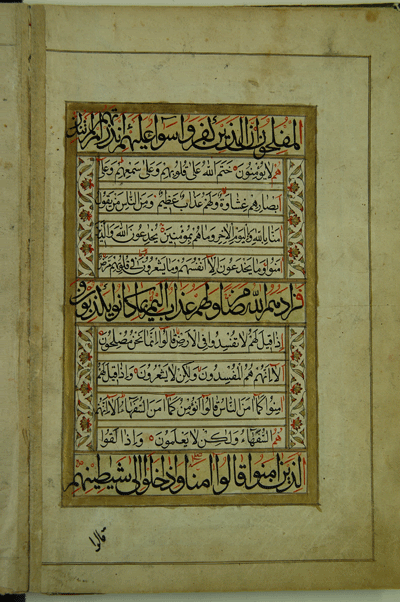 المفلحون ان الذين كفروا سواء عليهم ءانذرتهم ام لم تنذر
هم لا يؤمنون ختم الله على قلوبهم وعلى سمعهم وعلى
ابصارهم غشاوة ولهم عذاب عظيم ومن الناس من يقول
امنا بالله وباليوم الاخر وما هم بمؤمنين يخدعون الله والذين
امنوا وما يخدعون الا انفسهم وما يشعرون في قلوبهم مرض
فزادهم الله مرضا ولهم عذاب اليم بما كانوا يكذبون و
اذا قيل لهم لا تفسدوا في الارض قالوا انما نحن مصلحون
الا انهم هم المفسدون ولكن لا يشعرون واذا قيل لهم
امنوا كما امن الناس قالوا انؤمن كما امن السفهاء الا انهم
هم السفهاء ولكن لا يعلمون واذا لقوا
الذين امنوا قالوا امنا واذا خلوا الى شيطينهم
قالوا